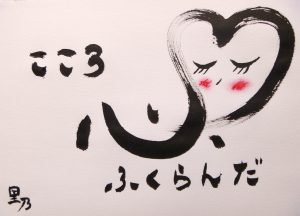 こころ
心
ふくらんだ
里乃